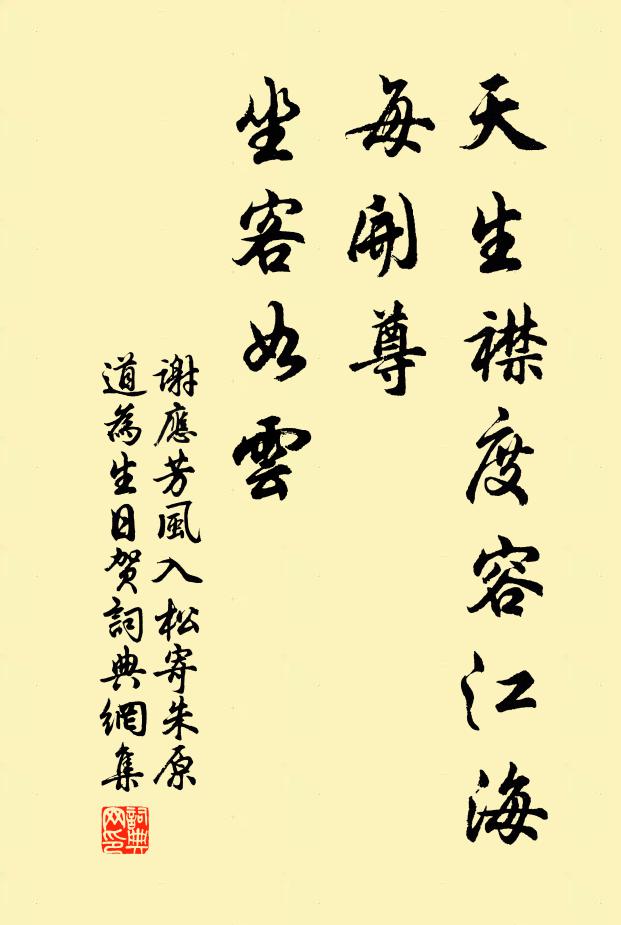 天生襟度容江海
每開尊
坐客如雲
謝應芳風入松寄朱原
道為生日賀詞典網集
詞典網印